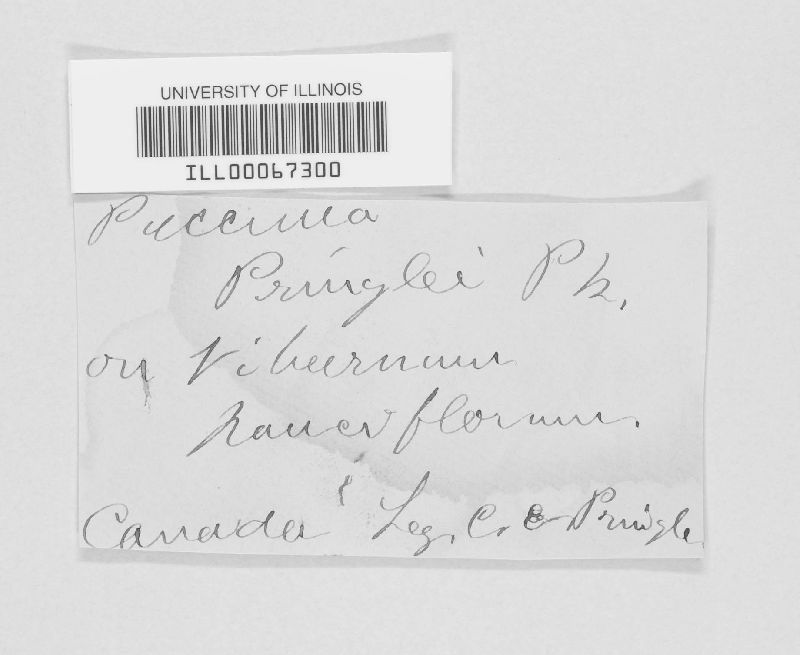 UNIVERSITY OF ILLINOIS
ILL00067300
Puccinia
Pringlei Pk.
on Viburnum
pauciflorum.
Canada Leg. C. G. Pringle